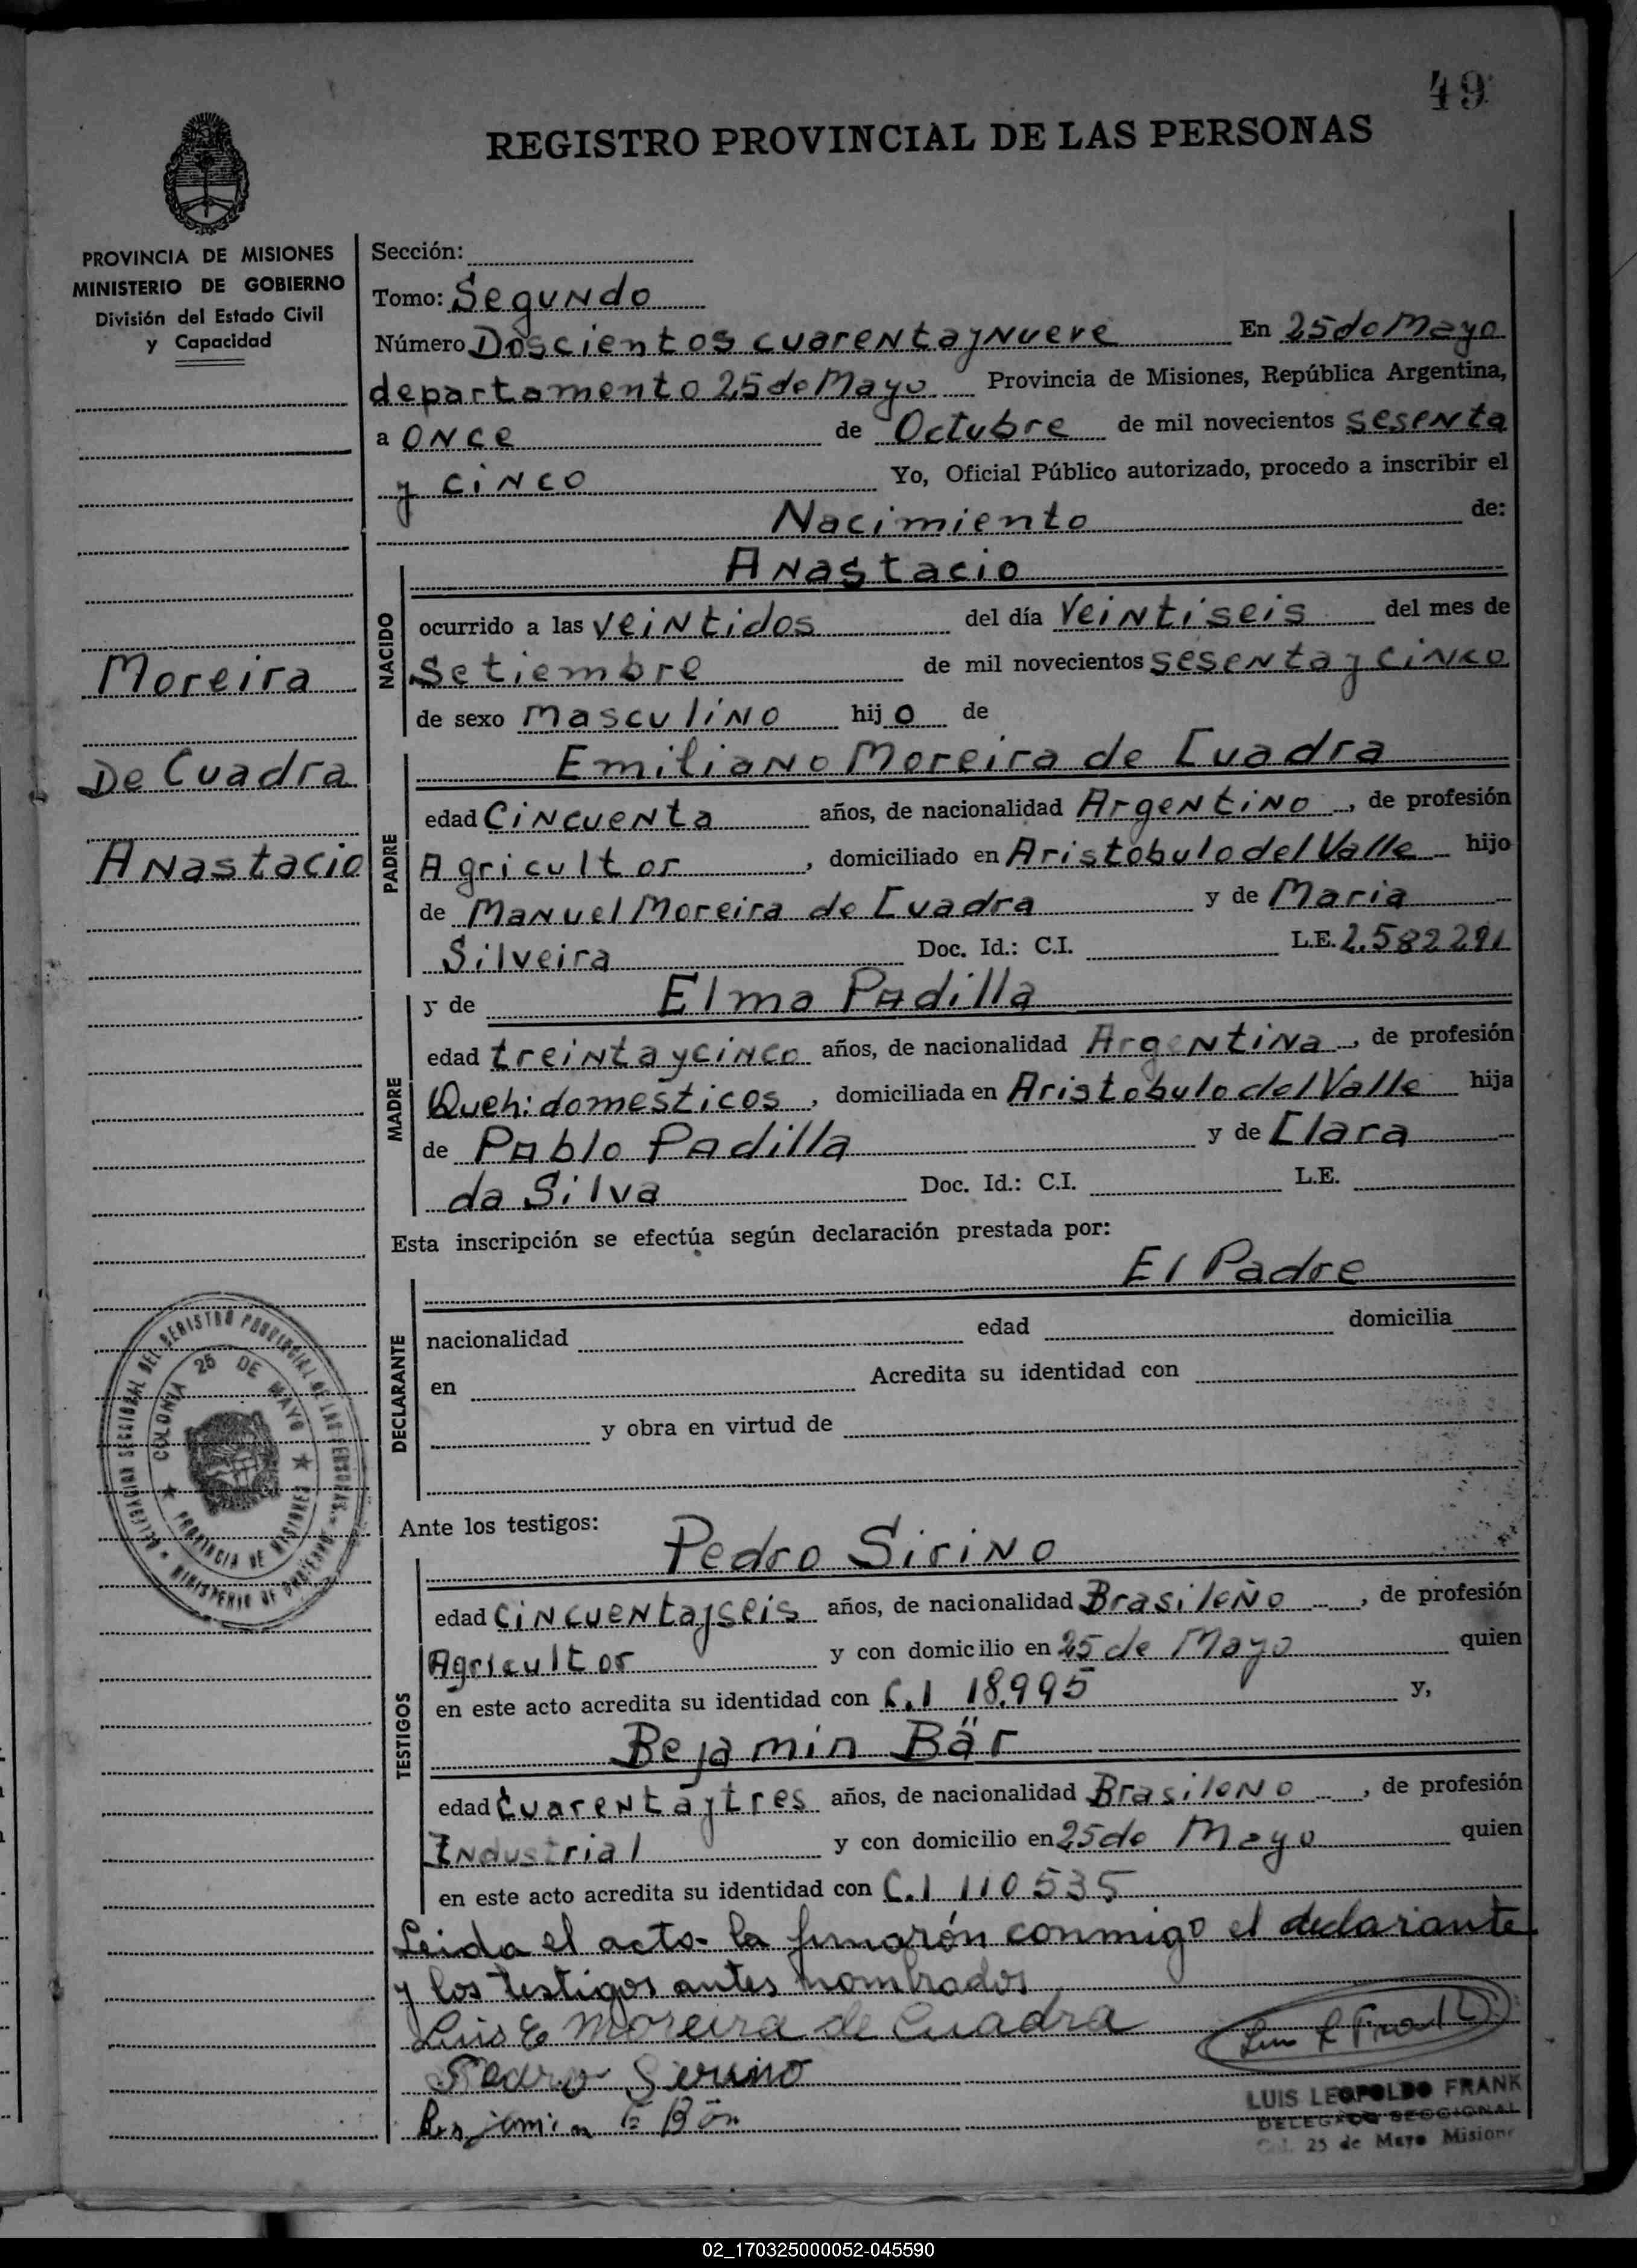 49
REGISTRO PROVINCIAL DE LAS PERSONAS
PROVINCIA DE MISIONES
MINISTERIO DE GOBIERNO
División del Estado Civil
y Capacidad
Moreira
De Cuadra
Anastacio
DELEGACION SECCIONAL DEL REGISTRO PROVINCIAL DE LAS PERSONAS
MINISTERIO DE GOBIERNO
COLONIA 25 DE MAYO
PROVINCIA DE MISIONES
Sección:
Tomo: Segundo
Número Doscientos cuarenta y Nueve En 25 de Mayo
departamento 25 de Mayo Provincia de Misiones, República Argentina,
a ONce de Octubre de mil novecientos sesenta
y cinco Yo, Oficial Público autorizado, procedo a inscribir el
Nacimiento de:
NACIDO
Anastacio
ocurrido a las veintidos del día Veintiseis del mes de
Setiembre de mil novecientos sesenta y cinco
de sexo masculino hijo de
PADRE
Emiliano Moreira de Cuadra
edad Cincuenta años, de nacionalidad Argentino, de profesión
Agricultor, domiciliado en Aristobulo del Valle hijo
de Manuel Moreira de Cuadra y de Maria
Silveira Doc. Id.: C.I. L.E. 2.582291
MADRE
y de Elma Padilla
edad treinta y cinco años, de nacionalidad Argentina, de profesión
Queh: domesticos, domiciliada en Aristobulo del Valle hija
de Pablo Padilla y de Clara
da Silva Doc. Id.: C.I. L.E.
Esta inscripción se efectúa según declaración prestada por:
DECLARANTE
El Padre
nacionalidad edad domicilia
en Acredita su identidad con
y obra en virtud de
Ante los testigos:
TESTIGOS
Pedro Sirino
edad Cincuenta y seis años, de nacionalidad Brasileño, de profesión
Agricultor y con domicilio en 25 de Mayo quien
en este acto acredita su identidad con C.I 18.995 y,
Bejamin Bär
edad Cuarenta y tres años, de nacionalidad Brasileño, de profesión
Industrial y con domicilio en 25 de Mayo quien
en este acto acredita su identidad con C.I 110535
Leida el acta la firmarón conmigo el declarante
y los testigos antes nombrados
Luis E Moreira de Cuadra
Pedro Serino
LUIS LEOPOLDO FRANK
DELEGADO SECCIONAL
Col. 25 de Mayo Misiones
02_170325000052-045590